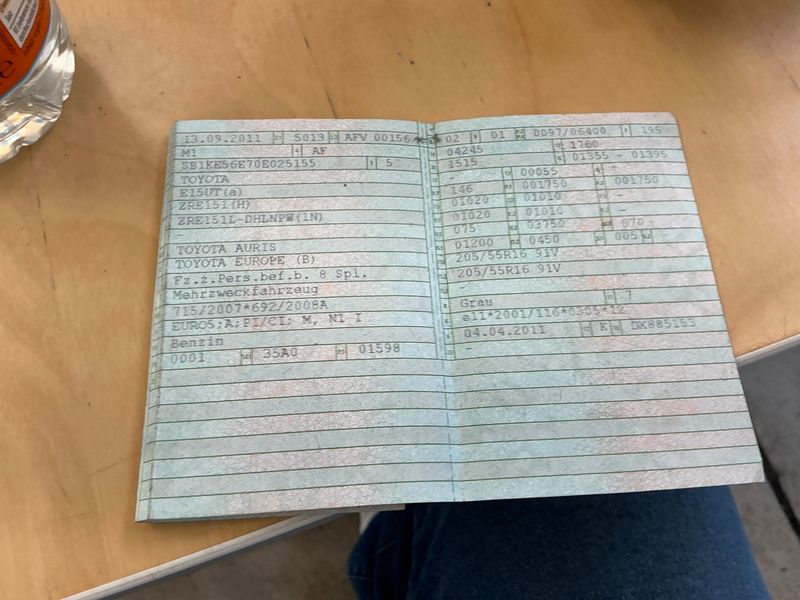 13.09.2011 5013 AFV 00156
M1 AF
SB1KE56E70E025155 5
TOYOTA
E15UT(a)
ZRE151(H)
ZRE151L-DHLNPW(1N)
TOYOTA AURIS
TOYOTA EUROPE (B)
Fz.z.Pers.bef.b. 8 Spl.
Mehrzweckfahrzeug
715/2007*692/2008A
EURO5;A;PI/CI; M, N1 I
Benzin
0001 35A0 01598
02 01 0097/06400 195
04245 1760
1515 01355 - 01395
00055 -
146 001750 001750
01020 01010 -
01020 01010 -
075 03750 070
01200 0450 005
205/55R16 91V
205/55R16 91V
-
Grau 7
e11*2001/116*0305*12
04.04.2011 K DX885153
-